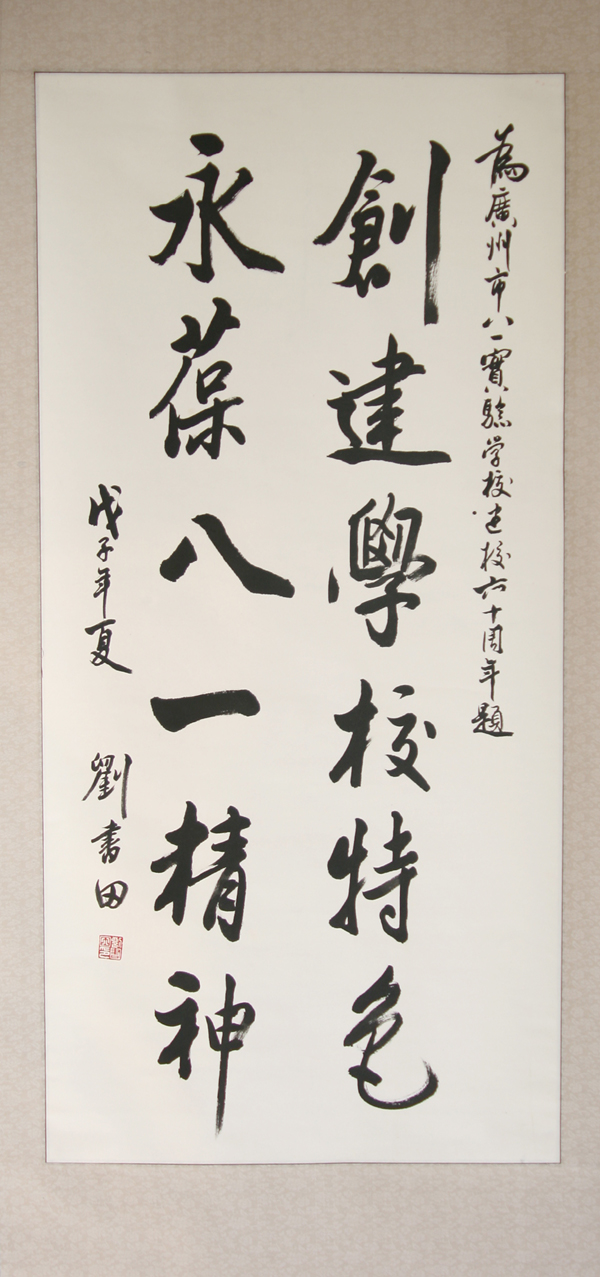 為廣州市八一實驗学校建校六十周年題
創建學校特色
永葆八一精神
戊子年夏
劉書田